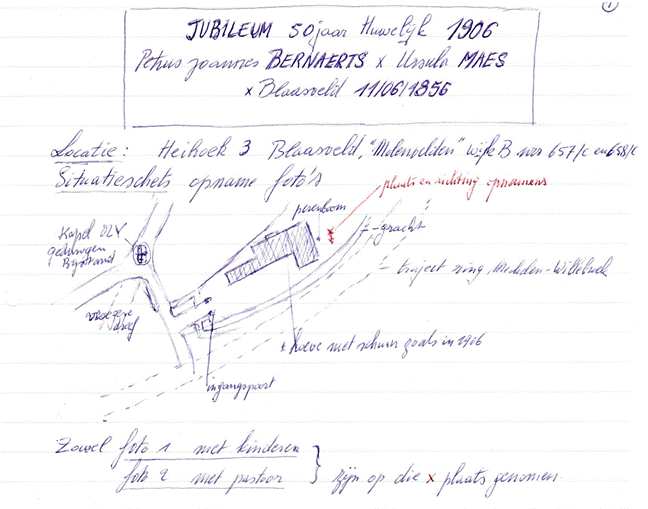 1
JUBILEUM 50 jaar Huwelijk 1906
Petrus Joannes BERNAERTS x Ursula MAES
x Blaasveld 11/06/1856
Locatie: Heihoek 3 Blaasveld, "Molenvelden" wijk B nos 657/c en 658/c
Situatieschets opname foto's
plaats en richting opnemens
perenboom
Kapel OLV
gedurigen
Bijstand
gracht
traject ring Mechelen-Willebroek
vroegere
dreef
* hoeve met schuur zoals in 1906
ingangspoort
Zowel foto 1 met kinderen
foto 2 met pastoor
zijn op die x plaats genomen